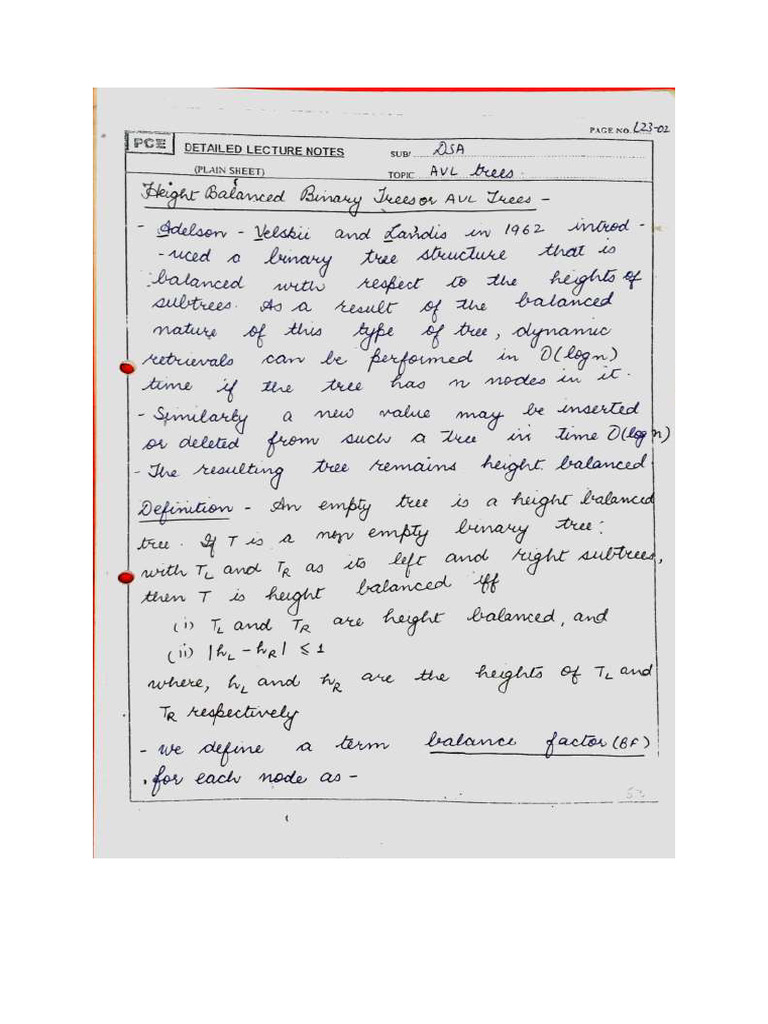 PAGE NO. L23-02
PCE DETAILED LECTURE NOTES SUB/ DSA
(PLAIN SHEET) TOPIC AVL trees
Height Balanced Binary Trees or AVL Trees -
- Adelson - Velskii and Landis in 1962 introd -
- uced a binary tree structure that is
balanced with respect to the heights of
subtrees. As a result of the balanced
nature of this type of tree, dynamic
retrievals can be performed in O(log n)
time if the tree has n nodes in it.
- Similarly a new value may be inserted
or deleted from such a tree in time O(log n)
- The resulting tree remains height balanced
Definition - An empty tree is a height balanced
tree. If T is a non empty binary tree:
with TL and TR as its left and right subtrees,
then T is height balanced iff
(i) TL and TR are height balanced, and
(ii) |hL - hR| ≤ 1
where, hL and hR are the heights of TL and
TR respectively
- we define a term balance factor (BF)
for each node as -